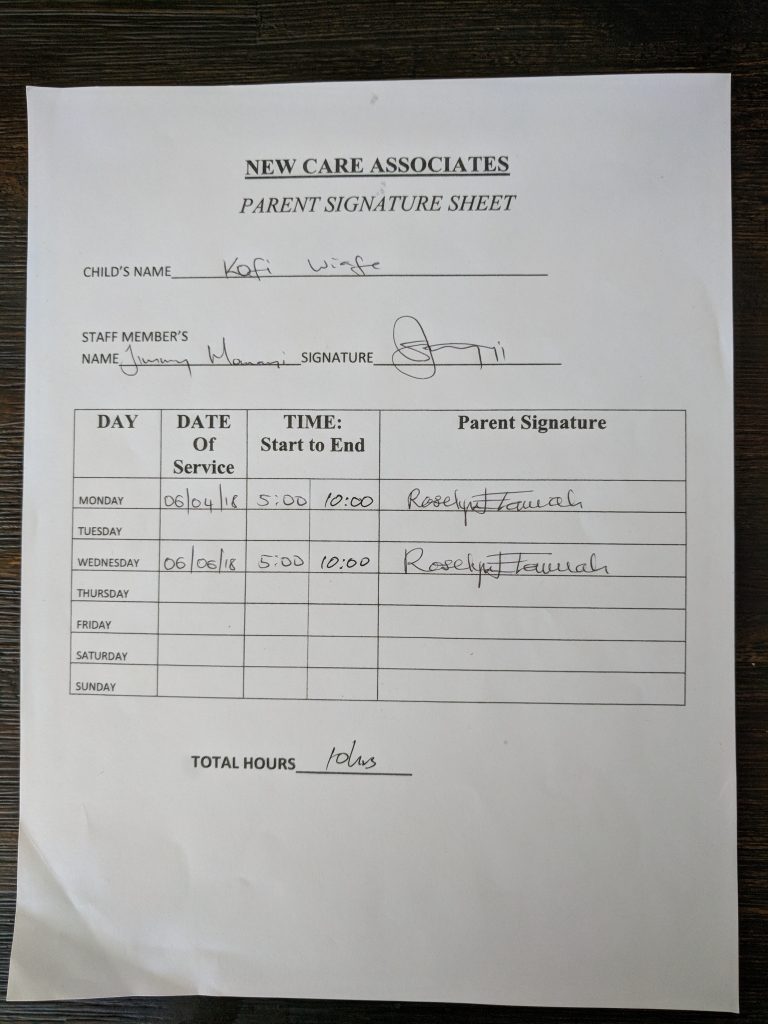 NEW CARE ASSOCIATES
PARENT SIGNATURE SHEET
CHILD'S NAME Kofi Wiafe
STAFF MEMBER'S
NAME Jimmy SIGNATURE
DAY DATE Of Service TIME: Start to End Parent Signature
MONDAY 06/04/18 5:00 10:00 Roselyn
TUESDAY
WEDNESDAY 06/06/18 5:00 10:00 Roselyn
THURSDAY
FRIDAY
SATURDAY
SUNDAY
TOTAL HOURS 10hrs